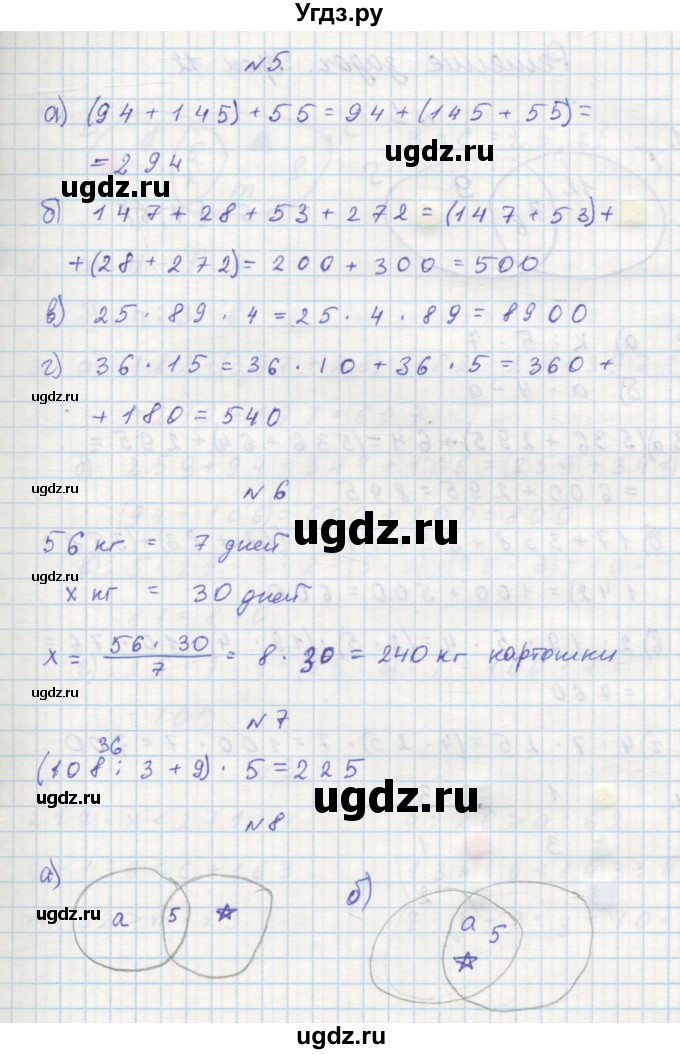 Угдз.ру
№5.
а) (94 + 145) + 55 = 94 + (145 + 55) =
= 294
ugdz.ru
ugdz.ru
б) 147 + 28 + 53 + 272 = (147 + 53) +
+ (28 + 272) = 200 + 300 = 500
в) 25 · 89 · 4 = 25 · 4 · 89 = 8900
г) 36 · 15 = 36 · 10 + 36 · 5 = 360 +
ugdz.ru
+ 180 = 540
ugdz.ru
№6
ugdz.ru
56 кг = 7 дней
ugdz.ru
x кг = 30 дней
x = 56 · 30 / 7 = 8 · 30 = 240 кг картошки
ugdz.ru
№7
36
(108 : 3 + 9) · 5 = 225
ugdz.ru
ugdz.ru
№8
а)
б)
ugdz.ru
а 5
а 5
ugdz.ru